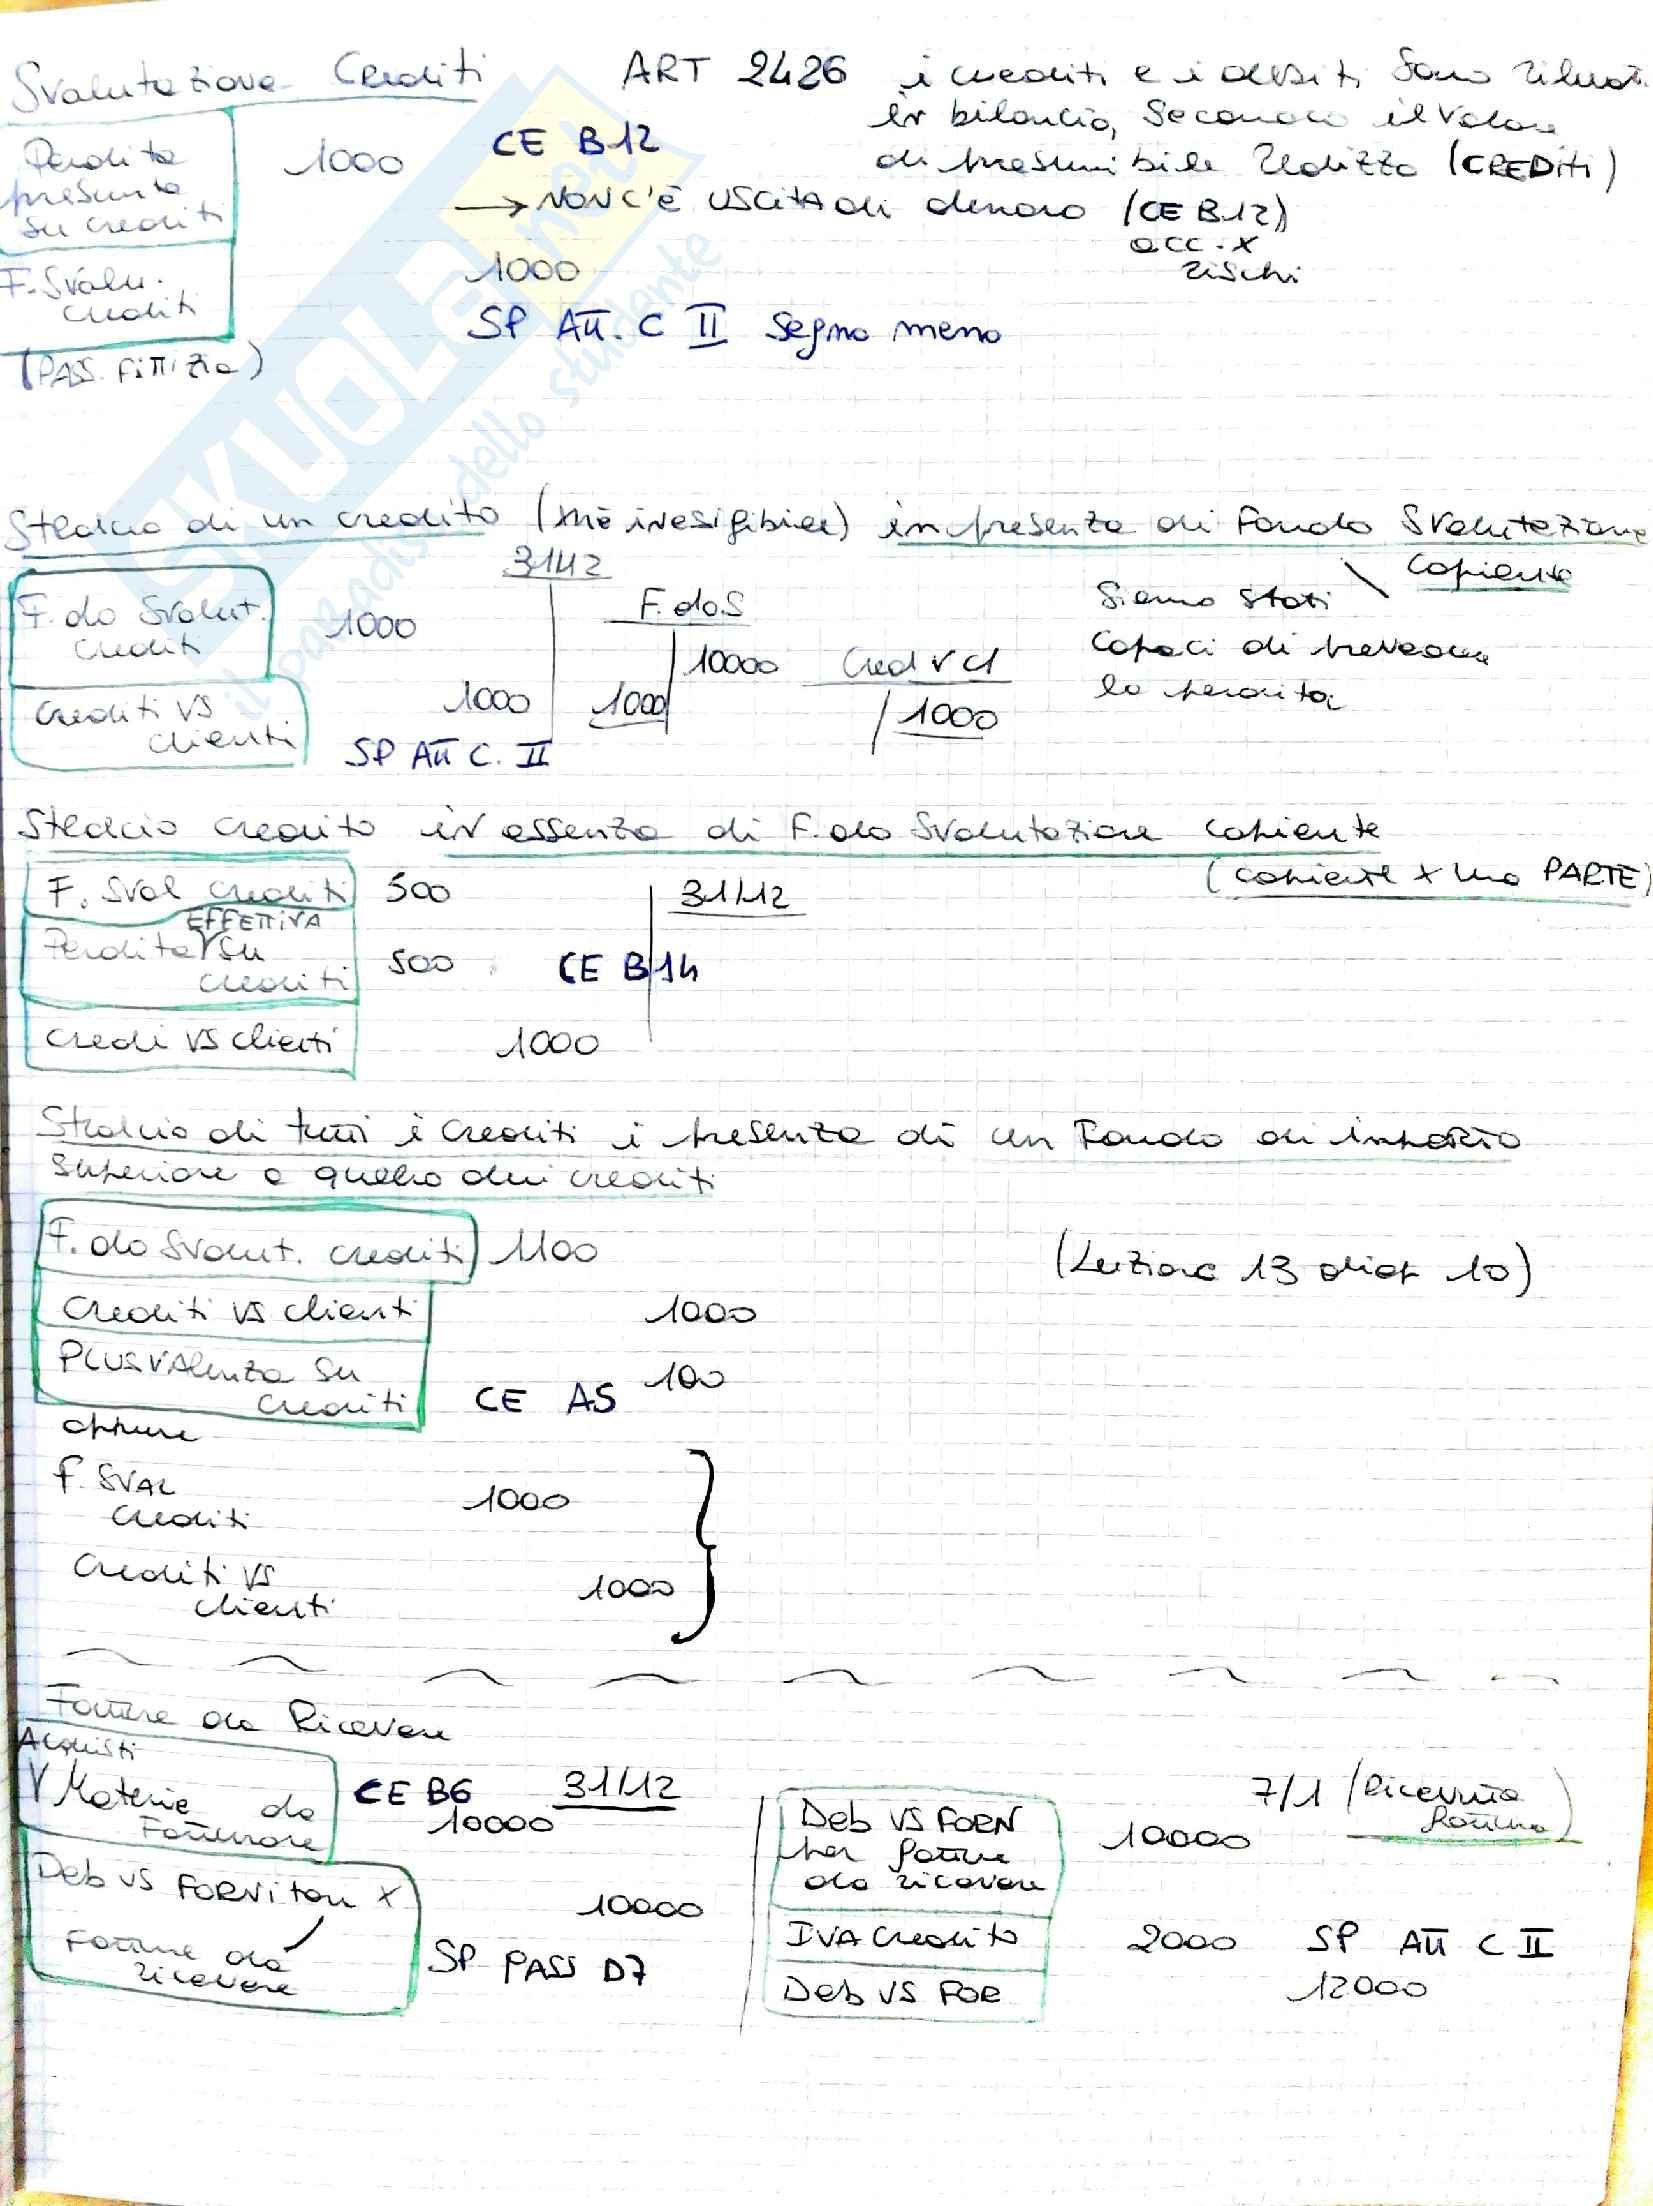 Svalutazione Crediti ART 2426 i crediti e i debiti sono rilevat.
in bilancio, secondo il valore
Perdita 1000 CE B12 di presumibile realizzo (CREDITI)
presunta → NON C'È USCITA di denaro (CE B12)
su crediti acc. x
F. Svalu. 1000 rischi
crediti SP Att. C II segno meno
(PASS. FITTIZIA)
SKUOLA.net
il paradiso dello studente
Stralcio di un credito (inesigibile) in presenza di Fondo Svalutazione
31/12 capiente
F.do Svalut. 1000 F.do S Siamo stati
crediti 10000 Cred v cl capaci di prevedere
Crediti VS 1000 1000 1000 la perdita
clienti SP Att C. II
Stralcio credito in assenza di F.do Svalutazione capiente
(capiente x una PARTE)
F. Sval crediti 500 31/12
EFFETTIVA
Perdita su 500 CE B14
crediti
Credi VS clienti 1000
Stralcio di tutti i crediti i presenza di un Fondo di importo
superiore a quello dei crediti
F.do Svalut. crediti 1100 (Lezione 13 diap 10)
Crediti VS clienti 1000
PLUSVALenza su 100
crediti CE A5
oppure
F. SVAL 1000
crediti
Crediti VS 1000
clienti
Fatture da Ricevere
Acquisti
Materie da CE B6 31/12
Fatturare 10000
Deb VS FORNitori x 10000
Fatture da SP PASS D7
ricevere
7/1 (Ricevuta
fattura)
Deb VS FORN 10000
per fatture
da ricevere
IVA Credito 2000 SP Att C II
Deb VS FOR 12000